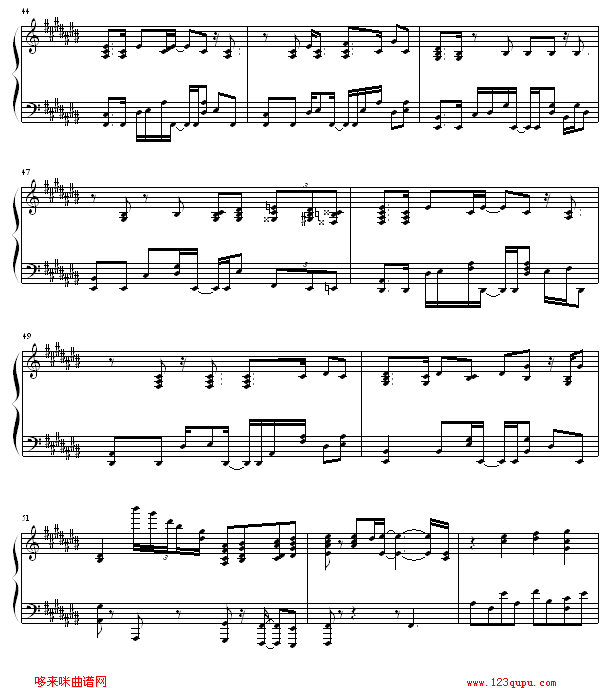 44
47
3
3
49
51
3
哆来咪曲谱网
www.123qupu.com